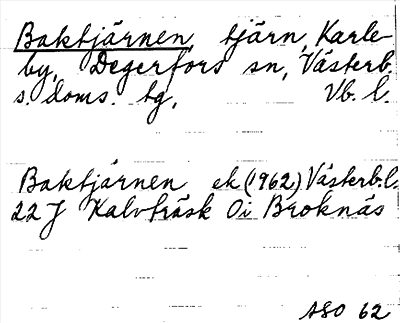 Baktjärnen, tjärn, Karle-
by, Degerfors sn, Västerb.
s. doms. tg, Vb. l.
Baktjärnen ek (1962) Västerb.l.
22 J Kalvträsk Oi Broknäs
ASO 62